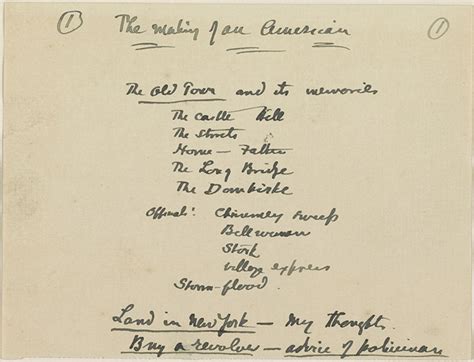 1 The making of an American 1
The Old Town and its memories
The Castle Hill
The Streets
Home — Father
The Long Bridge
The Domkirke
Officials: Chimney Sweep
Bellwoman
Stork
village express
Storm-flood
Land in New York — My thoughts
Buy a revolver — advice of policeman